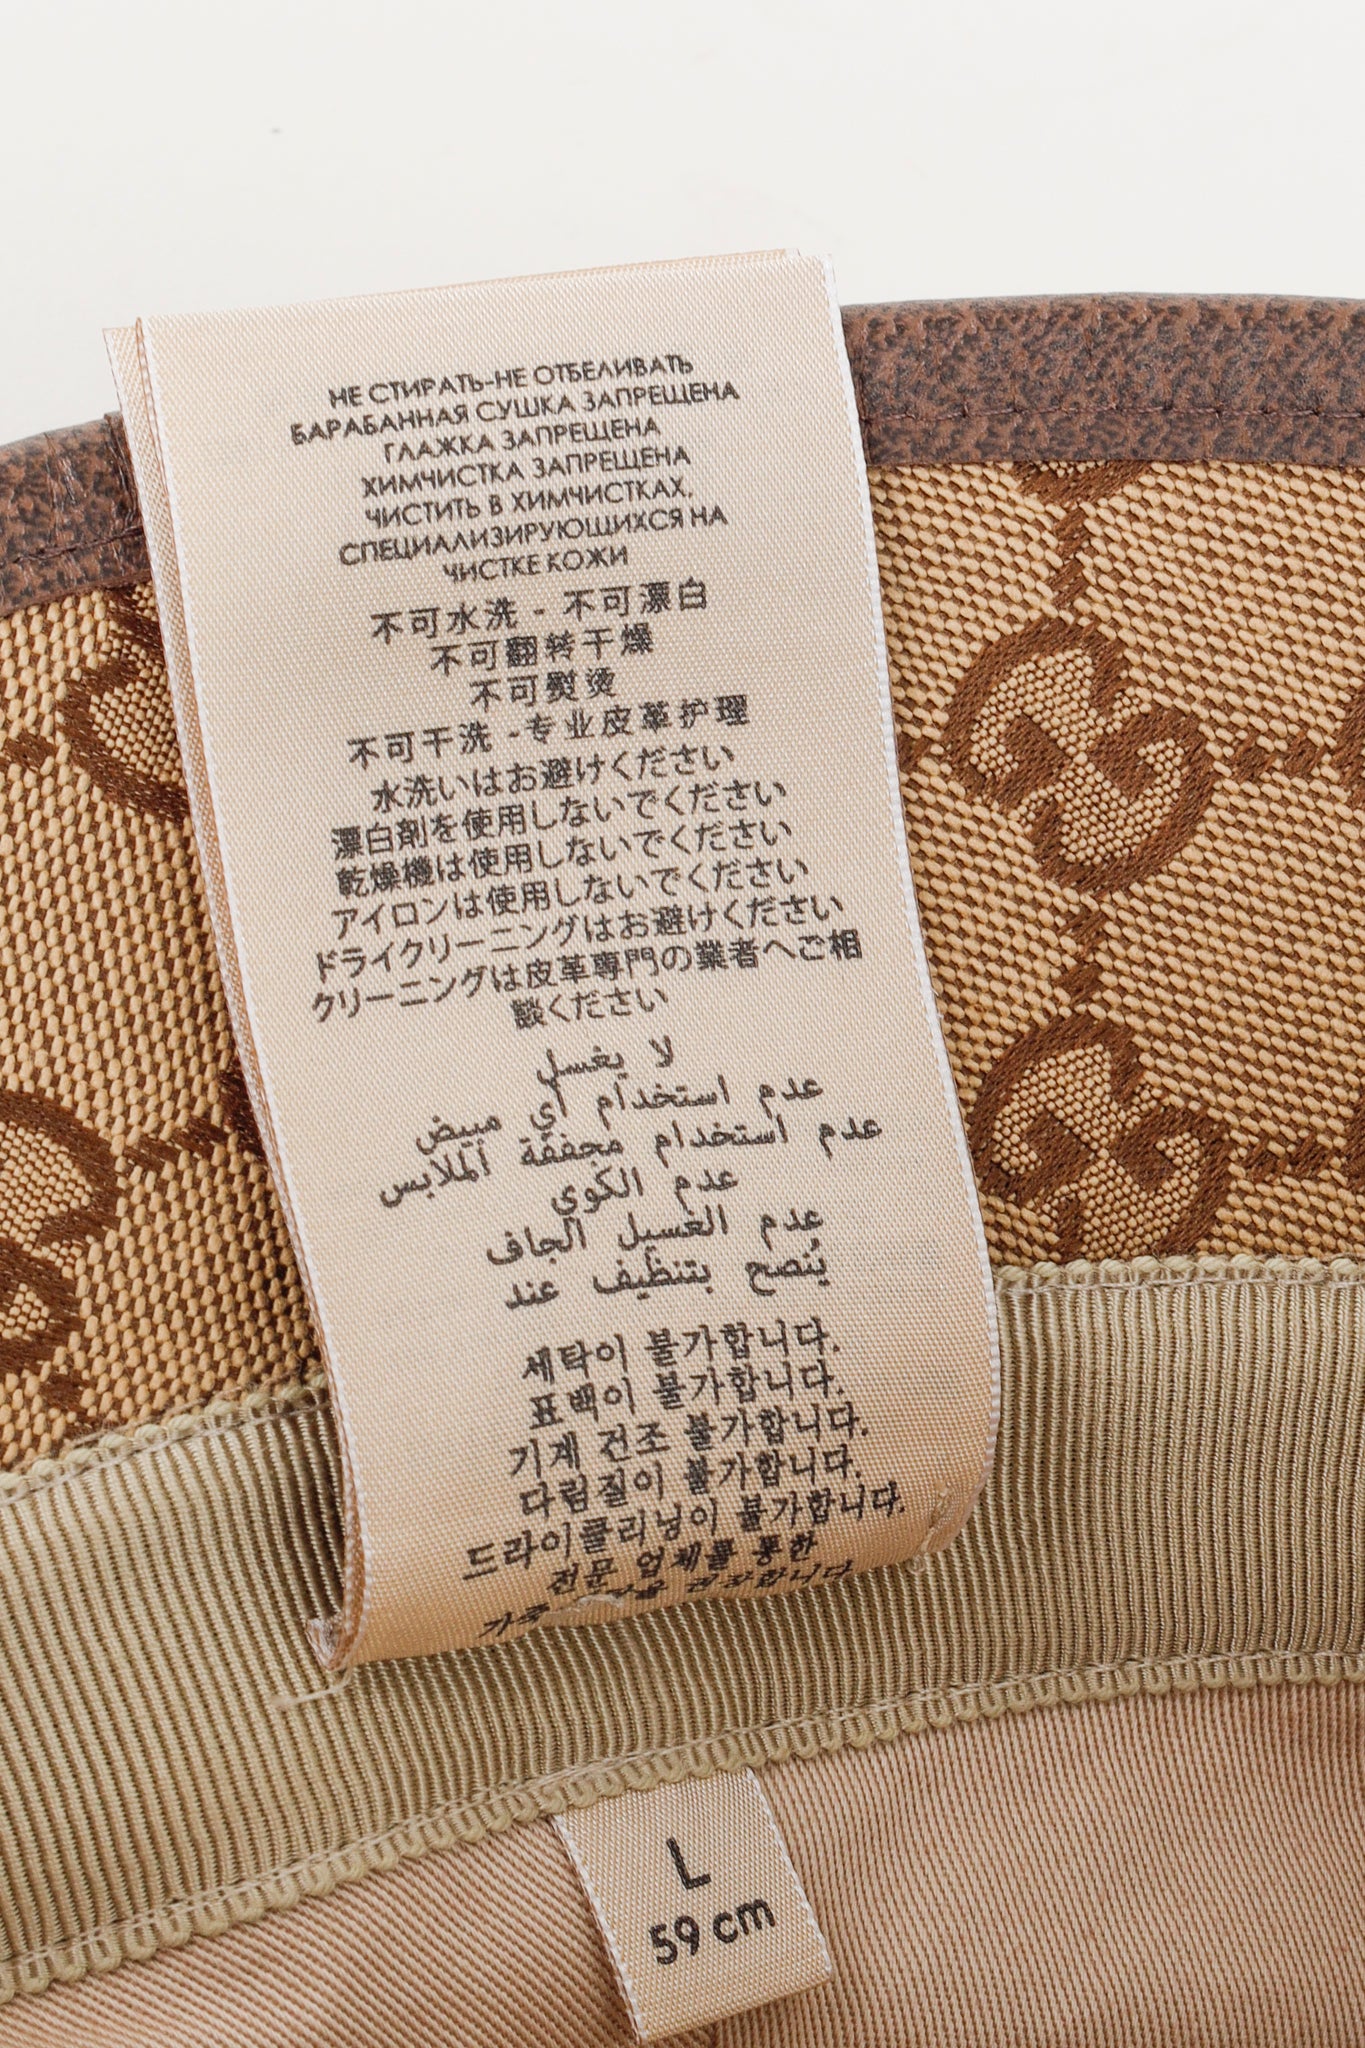 НЕ СТИРАТЬ-НЕ ОТБЕЛИВАТЬ
БАРАБАННАЯ СУШКА ЗАПРЕЩЕНА
ГЛАЖКА ЗАПРЕЩЕНА
ХИМЧИСТКА ЗАПРЕЩЕНА
ЧИСТИТЬ В ХИМЧИСТКАХ,
СПЕЦИАЛИЗИРУЮЩИХСЯ НА
ЧИСТКЕ КОЖИ
不可水洗 - 不可漂白
不可翻转干燥
不可熨烫
不可干洗 -专业皮革护理
水洗いはお避けください
漂白剤を使用しないでください
乾燥機は使用しないでください
アイロンは使用しないでください
ドライクリーニングはお避けください
クリーニングは皮革専門の業者へご相
談ください
لا يغسل
عدم استخدام أي مبيض
عدم استخدام مجففة الملابس
عدم الكوي
عدم الغسيل الجاف
يُنصح بتنظيف عند
세탁이 불가합니다.
표백이 불가합니다.
기계 건조 불가합니다.
다림질이 불가합니다.
드라이클리닝이 불가합니다.
전문 업체를 통한
가죽 권장합니다
L
59 cm